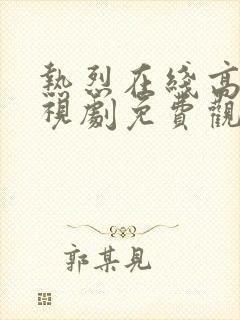 熱烈在綫高
視劇免費觀
郭某見